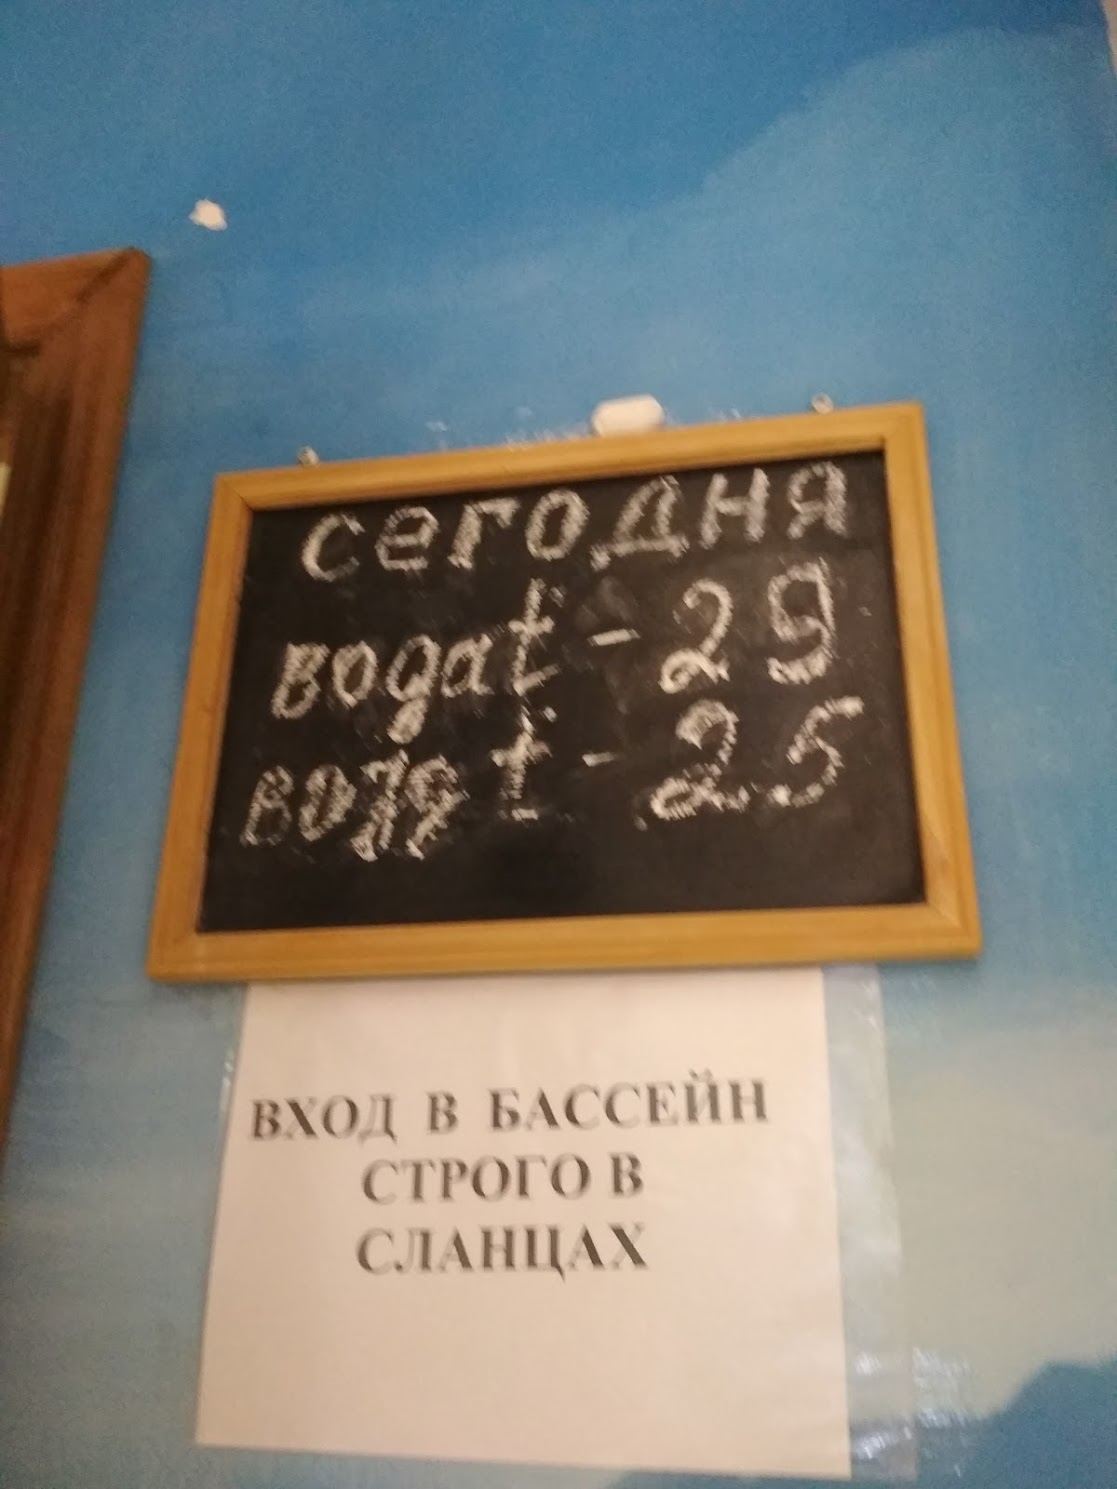 сегодня
вода t - 29
возд t - 25
ВХОД В БАССЕЙН
СТРОГО В
СЛАНЦАХ